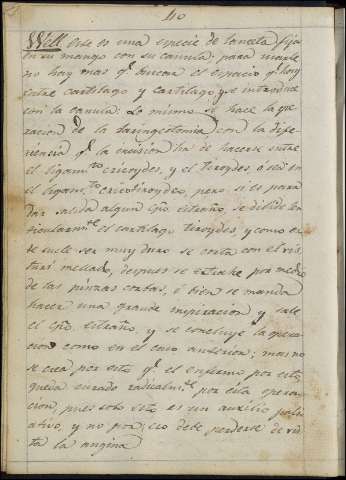 40
Well. este es una especie de lanceta fija
en su mango con su canula: para usarle
no hay mas q.e buscar el espacio q.e hay
entre cartilago y cartilago y se introduce
con la canula: Lo mismo se hace la ope
racion de la laringotomia con la dife
riencia q.e la incision ha de hacerse entre
el ligam.to cricoydes, y el tiroydes, ó sea en
el ligam.to cricotiroydes, pero si es para
dar salida algun cpo. estraño, se divide lon
gitudinalm.te el cartilago tiroydes, y como es
te suele ser muy duro se corta con el vis
turi mellado, despues se extrahe por medio
de las pinzas corbas, ó bien se manda
hacer una grande inspiracion y sale
el cpo. estraño, y se concluye la opera
cion como en el caso anterior; mas no
se crea por esto q.e el enfermo por esto
queda curado radicalm.te por esta opera
cion, pues solo esta es un auxilio pali
ativo, y no por eso debe perderse de vis
ta la angina